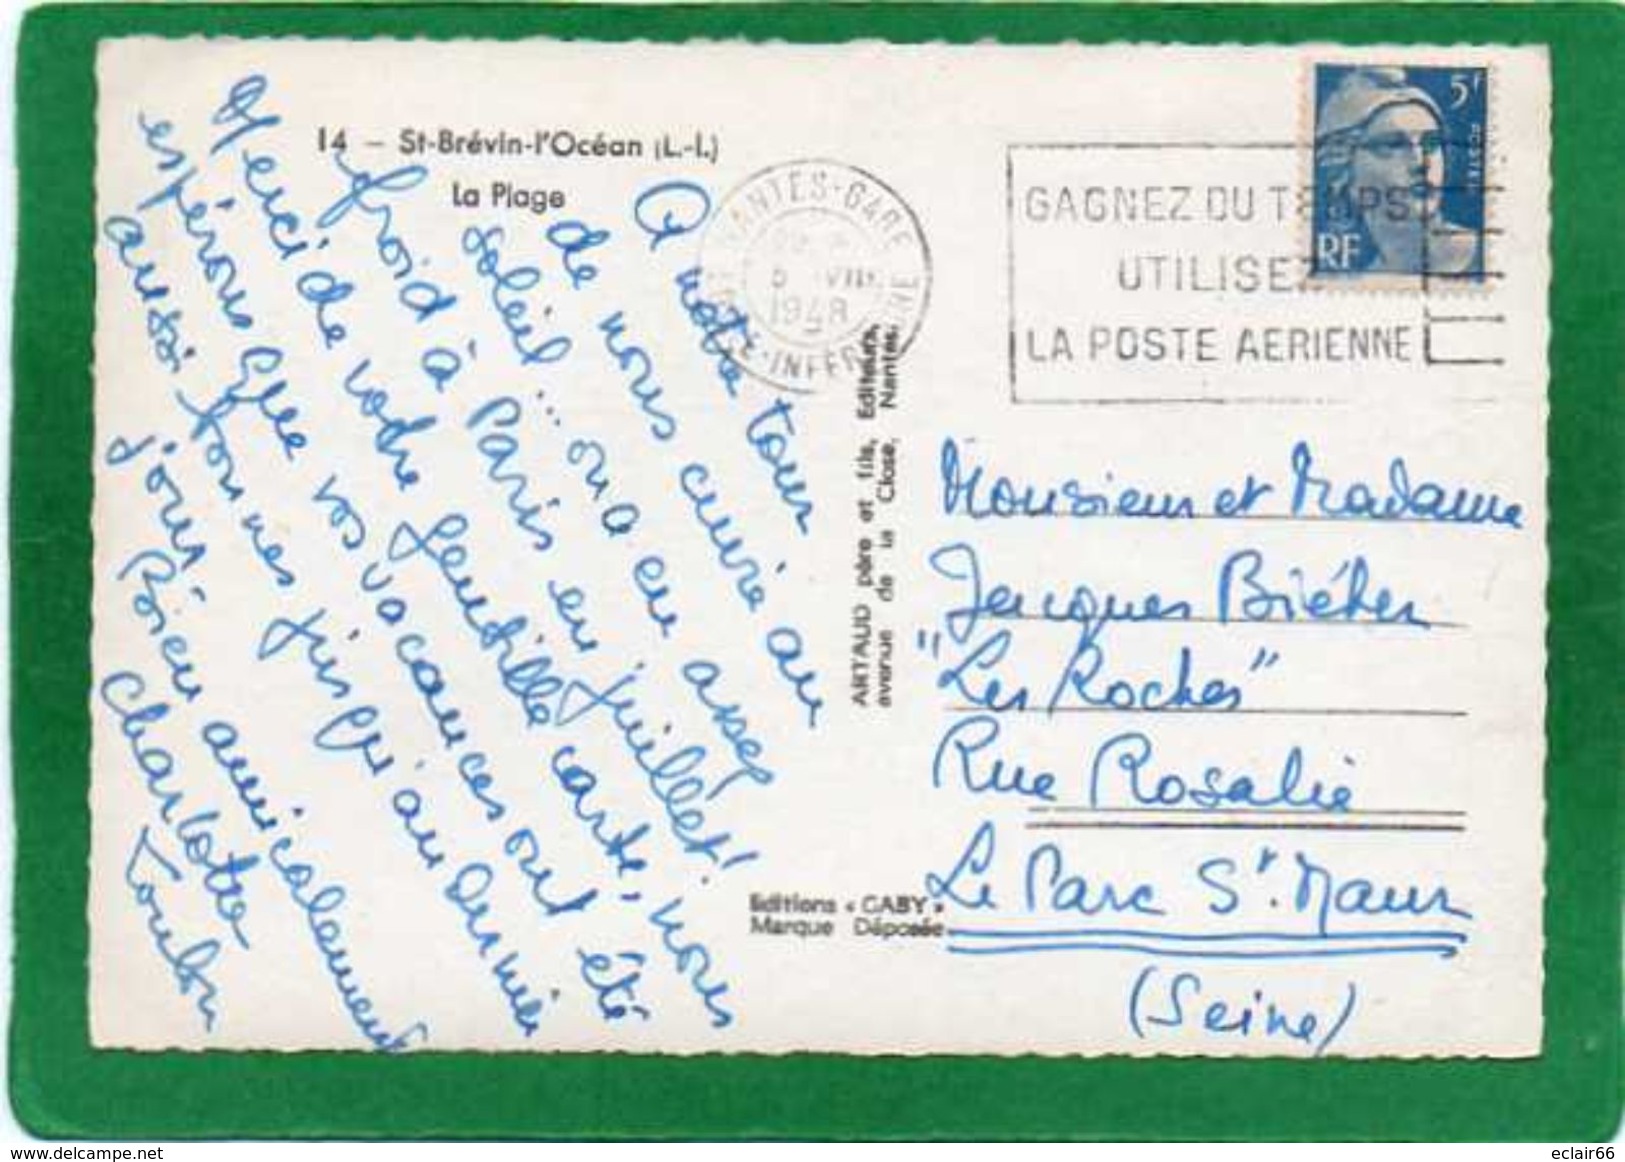 14 - St-Brévin-l'Océan (L.-I.)
La Plage
A notre tour
de nous cuire au
soleil ... on a eu assez
froid à Paris en juillet !
Merci de votre gentille carte, nous
espérons que vos vacances ont été
aussi bonnes jusqu'au dernier
jour.
Bien amicalement
Charlotte
ARTAUD père et fils, Editeurs,
avenue de la Close, Nantes.
Editions « GABY »
Marque Déposée
NANTES-GARE
VIII
1948
LOIRE-INFERIEURE
GAGNEZ DU TEMPS
UTILISEZ
LA POSTE AERIENNE
5F
RF
Monsieur et Madame
Jacques
"Les Roches"
Rue Rosalie
Le Parc St. Maur
(Seine)
eclair66